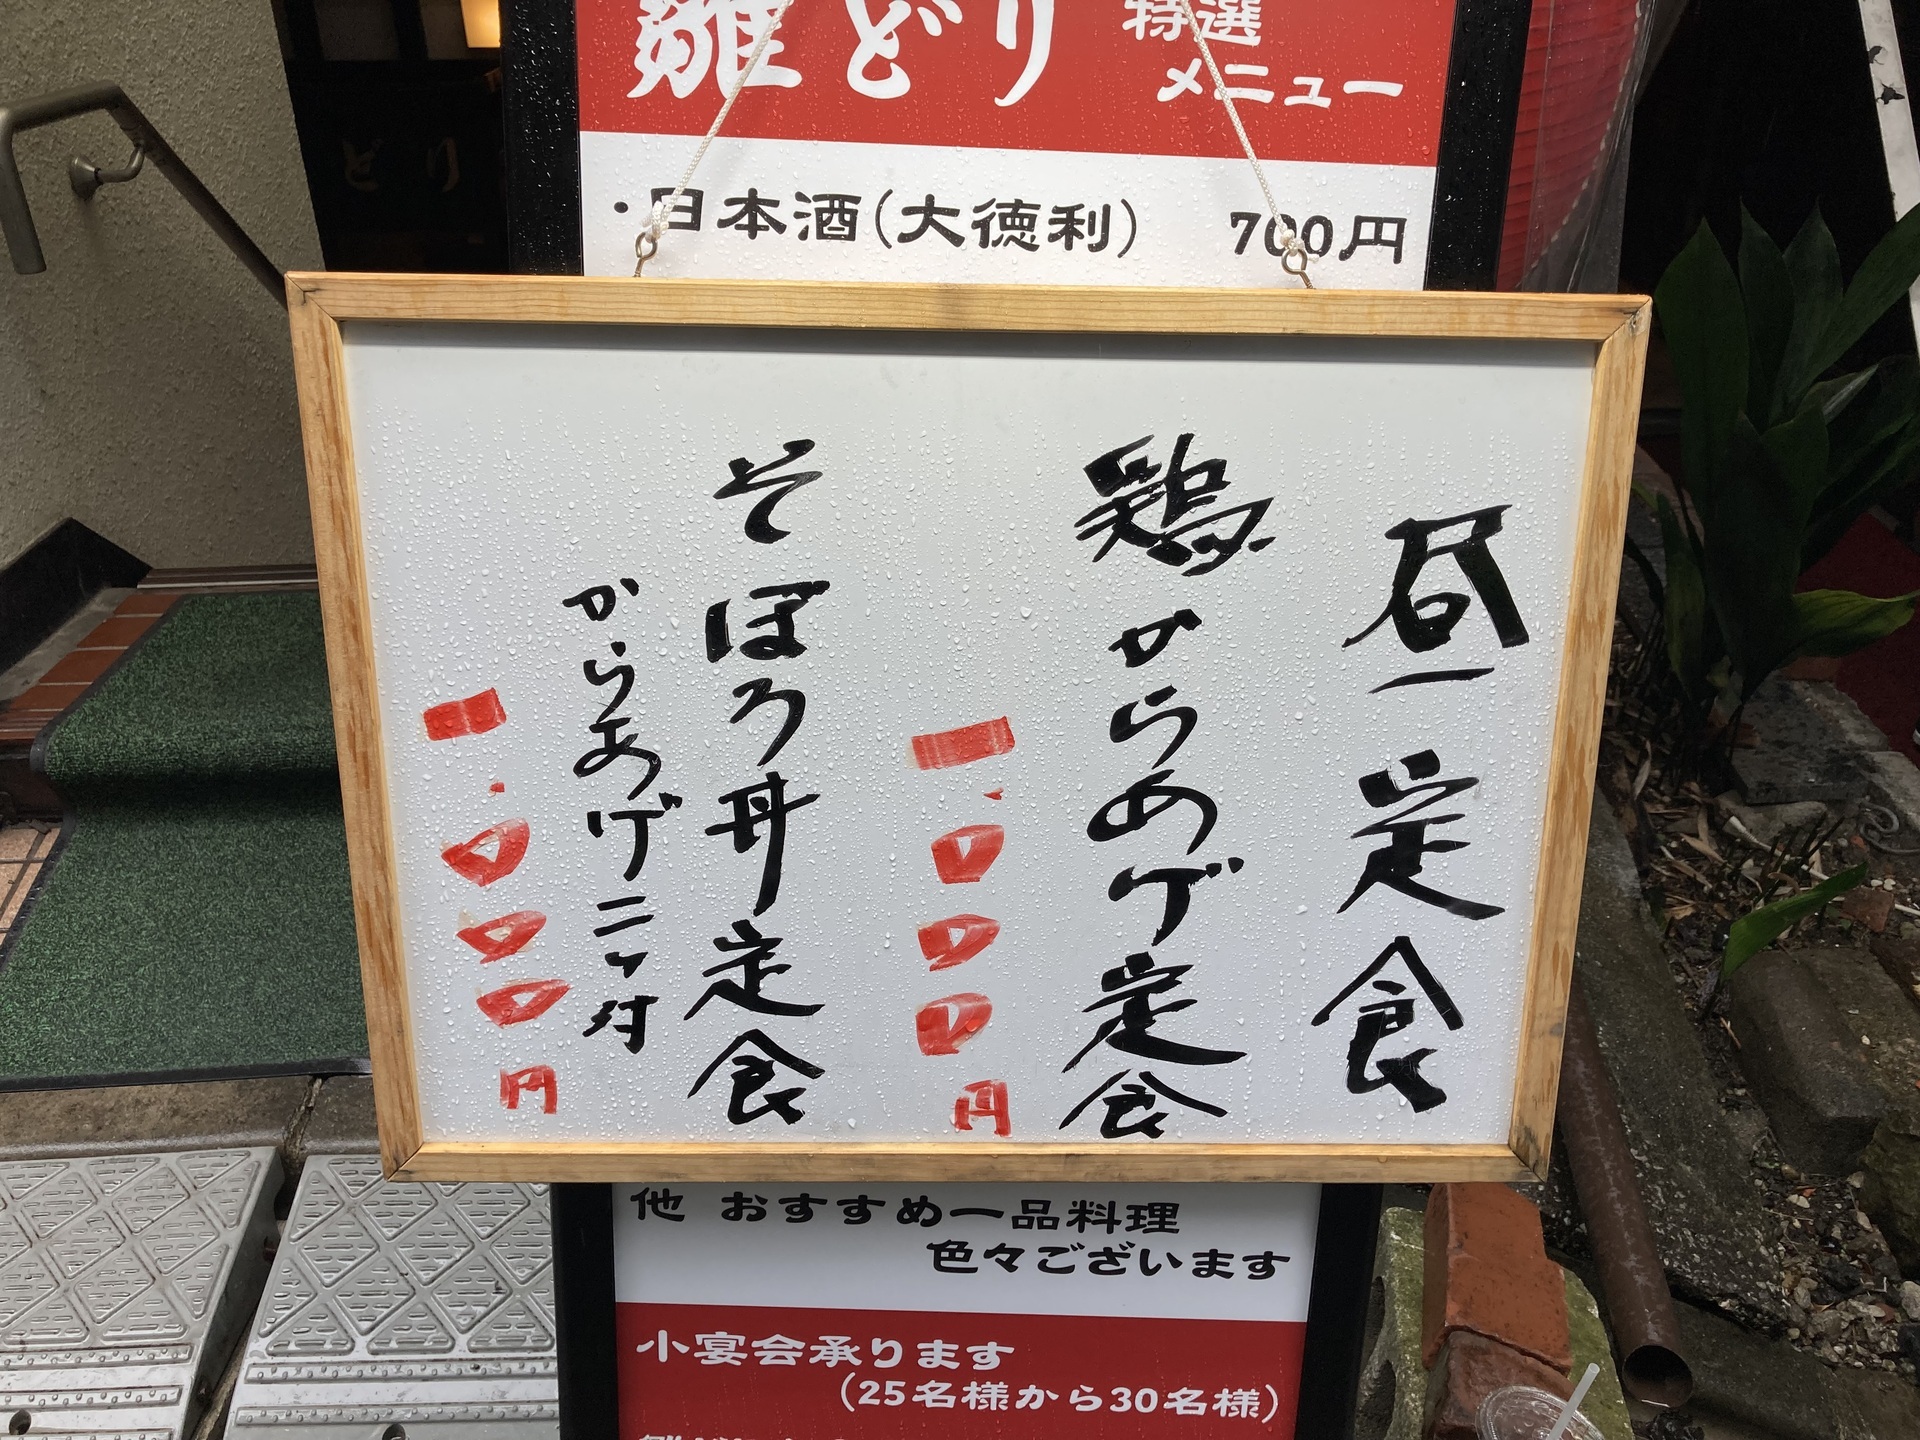 雛どり 特選
メニュー
・日本酒(大徳利) 700円
どり
昼定食
鶏からあげ定食
一.000円
そぼろ丼定食
からあげ二ヶ付
一.000円
他 おすすめ一品料理
色々ございます
小宴会承ります
(25名様から30名様)